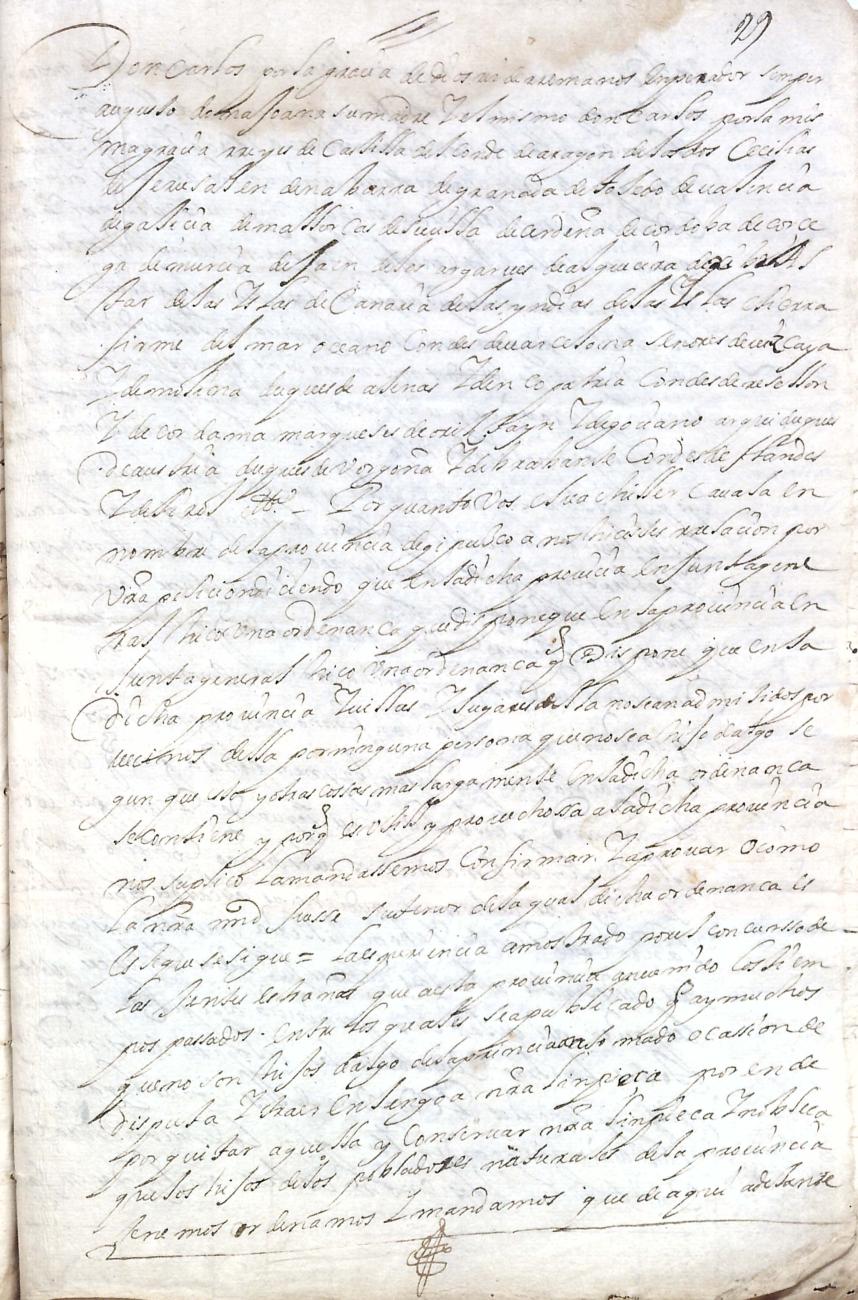 29
Don Carlos por la gracia de dios rei de alemanos Enperador senper
augusto doña Joana su madre Y el mismo don Carlos por la mis
ma gracia rreyes de Castilla de leon de aragon de las dos Cecilias
de Jerusalen de nabarra de granada de toledo de valencia
de galicia de mallorcas de sevilla de cerdeña de cordoba de corce
ga de murcia de Jaen de los argarves de algecira de gibralt
tar de las Yslas de Canaria de las yndias de las Yslas e tierra
firme del mar oceano Condes de varcelona señores de vizcaya
Y de molina duques de atenas Y de neopatria Condes de rosellon
Y de cerdania marqueses de oristayn Y de gociano archiduques
de austria duques de vorgoña Y de brabante Condes de flandes
Y de tirol etc.ª – Por quanto vos el vachiller Çavala en
nombre de la provincia de gipuzcoa nos hicistes rrelacion por
vra peticion diciendo que en la dicha provincia en Junta gene
ral hico una ordenança que dispone que en la provincia en
Junta general hico una ordenança q dispone que en la
dicha provincia Y villas Y lugares della no sean admitidos por
vecinos della por ninguna persona que no sea hijo dalgo se
gun que esto y otras cossas mas largamente en la dicha ordenança
se contiene y porq es util y provechossa a la dicha provincia
nos suplico la mandassemos Confirmar Y aprovar o como
la nra md fuesse su tenor de la qual dicha ordenança es
este que se sigue = la esperiencia a mostrado por el concursso de
las Jentes estrañas que a esta provincia an venido los tiem
pos passados. entre los quales se a publicado q ay muchos
que no son hijos dalgo de la provincia an tomado ocassion de
disputa Y traer en lengoa nra linpieça por ende
por quitar aquella y Conservar nra linpieça Y nobleça
que los hijos de los pobladores naturales de la provincia
tenemos ordenamos Y mandamos que de aqui adelante